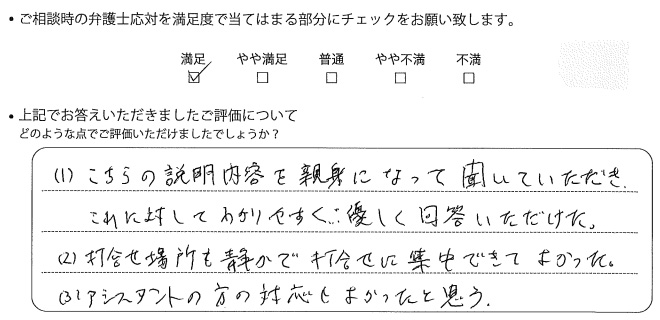 • ご相談時の弁護士応対を満足度で当てはまる部分にチェックをお願い致します。
満足 やや満足 普通 やや不満 不満
• 上記でお答えいただきましたご評価について
どのような点でご評価いただけましたでしょうか？
(1) こちらの説明内容を親身になって聞いていただき、
これに対してわかりやすく、優しく回答いただけた。
(2) 打合せ場所も静かで打合せに集中できてよかった。
(3) アシスタントの方の対応もよかったと思う。